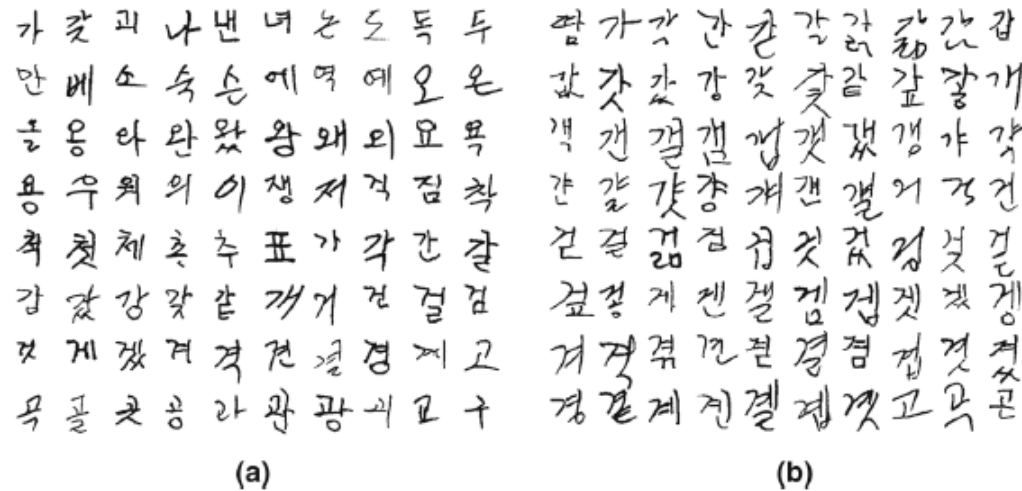 가 갖 괴 나 낸 녀 는 도 독 두
만 베 소 숙 슨 에 역 예 오 온
올 옹 와 완 왔 왕 왜 외 요 욕
용 우 워 의 이 생 저 직 짐 착
착 첫 체 추 표 가 각 간 갈
갑 갔 강 갖 같 개 거 건 걸 검
것 게 겠 겨 격 견 결 경 계 고
곡 골 곳 공 과 관 광 괴 교 구
(a)
땀 가 각 간 갇 갈 갉 갊 감 갑
값 갓 갔 강 갖 갗 같 갚 갛 개
객 갠 갤 갬 갭 갯 갰 갱 갸 갹
갼 걀 걋 걍 걔 걘 걜 거 걱 건
걷 걸 걺 검 겁 것 겄 겅 겆 겉
겊 겋 게 겐 겔 겜 겝 겟 겠 겡
겨 격 겪 견 겯 결 겸 겹 겻 겼
경 곁 계 곈 곌 곕 곗 고 곡 곤
(b)